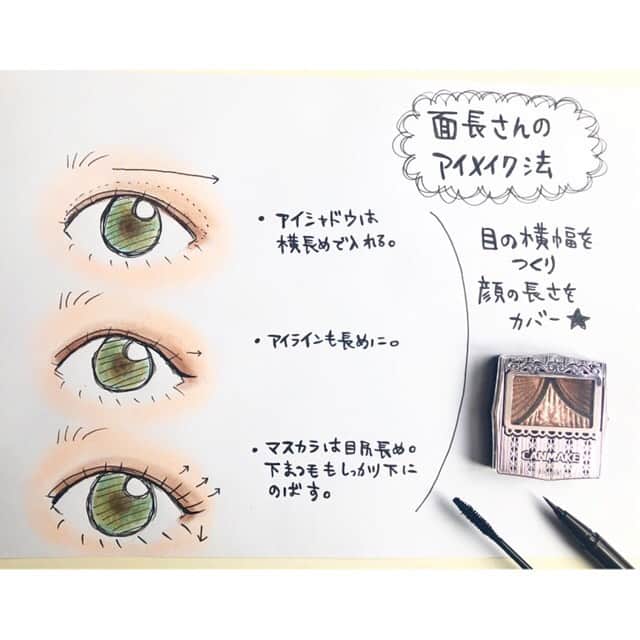 面長さんの
アイメイク法
・アイシャドウは
横長めで入れる。
・アイラインも長めに。
・マスカラは目尻長め。
下まつ毛もしっかり下に
のばす。
目の横幅を
つくり
顔の長さを
カバー★
CANMAKE